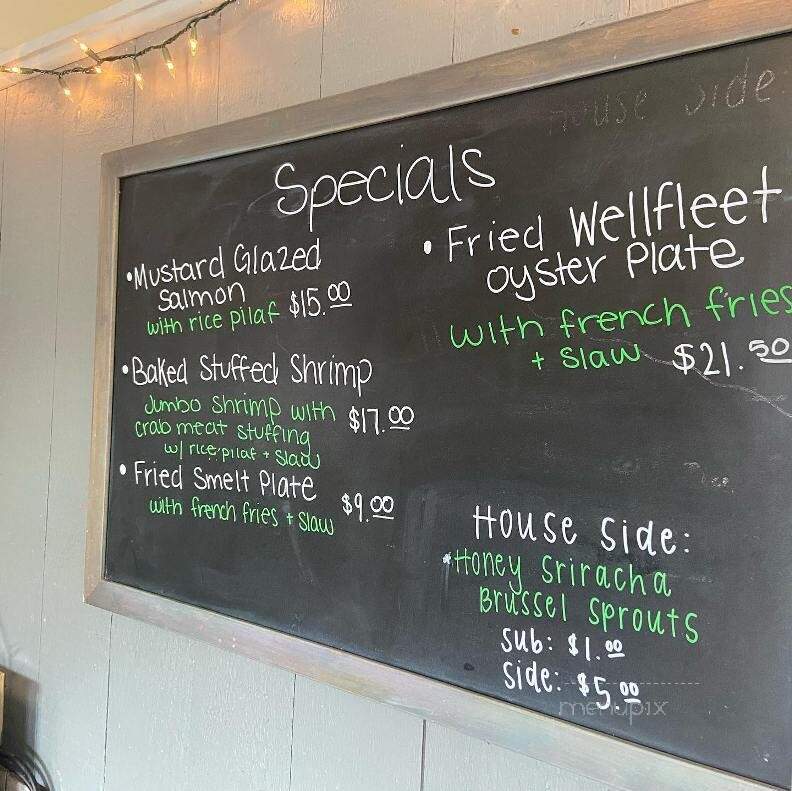 House Side:
Specials
• Mustard Glazed
Salmon $15.00
with rice pilaf
• Baked Stuffed Shrimp
Jumbo Shrimp with $17.00
crab meat stuffing
w/ rice pilaf + slaw
• Fried Smelt Plate
with french fries + slaw $9.00
• Fried Wellfleet
oyster Plate
with french fries
+ slaw $21.50
House Side:
*Honey Sriracha
Brussel Sprouts
Sub: $1.00
Side: $5.00
menupix